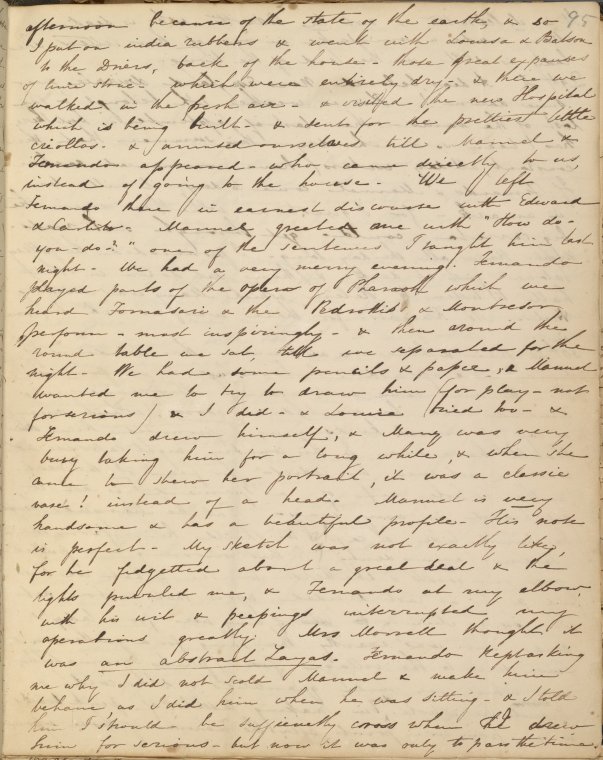 95
afternoon because of the state of the earth, & so
I put on india rubbers & went with Louisa & Batson
to the Driers, back of the house - those great expanses
of line stone - which were entirely dry - & there we
walked in the fresh air - & visited the new Hospital
which is being built - & sent for the prettiest little
criollos - & amused ourselves till Manuel &
Fernando appeared - who came directly to us,
instead of going to the house - We left
Fernando there in earnest discourse with Edward
& Carlito - Manuel greeted me with "How do-
you-do-?" one of the sentences I taught him last
night - We had a very merry evening. Fernando
played parts of the opera of Pharaoh which we
heard Fornasari & the Pedrottis & Montresor
perform - most inspiringly - & then around the
round table we sat, till we separated for the
night - We had some pencils & paper, & Manuel
wanted me to try to draw him (for play - not
for serious) & I did - & Louisa tried too - &
Fernando drew himself, & Mary was very
busy taking him for a long while, & when she
came to shew her portrait, it was a classic
vase! instead of a head - Manuel is very
handsome & has a beautiful profile - His nose
is perfect - My sketch was not exactly like,
for he fidgetted about a great deal & the
lights puzzled me, & Fernando at my elbow,
with his wit & peepings interrupted my
operations greatly. Mrs Morrell thought it
was an abstract Layas. Fernando kept asking
me why I did not scold Manuel & make him
behave as I did him when he was sitting - & I told
him I should be sufficiently cross when I drew
him for serious - but now it was only to pass the time.